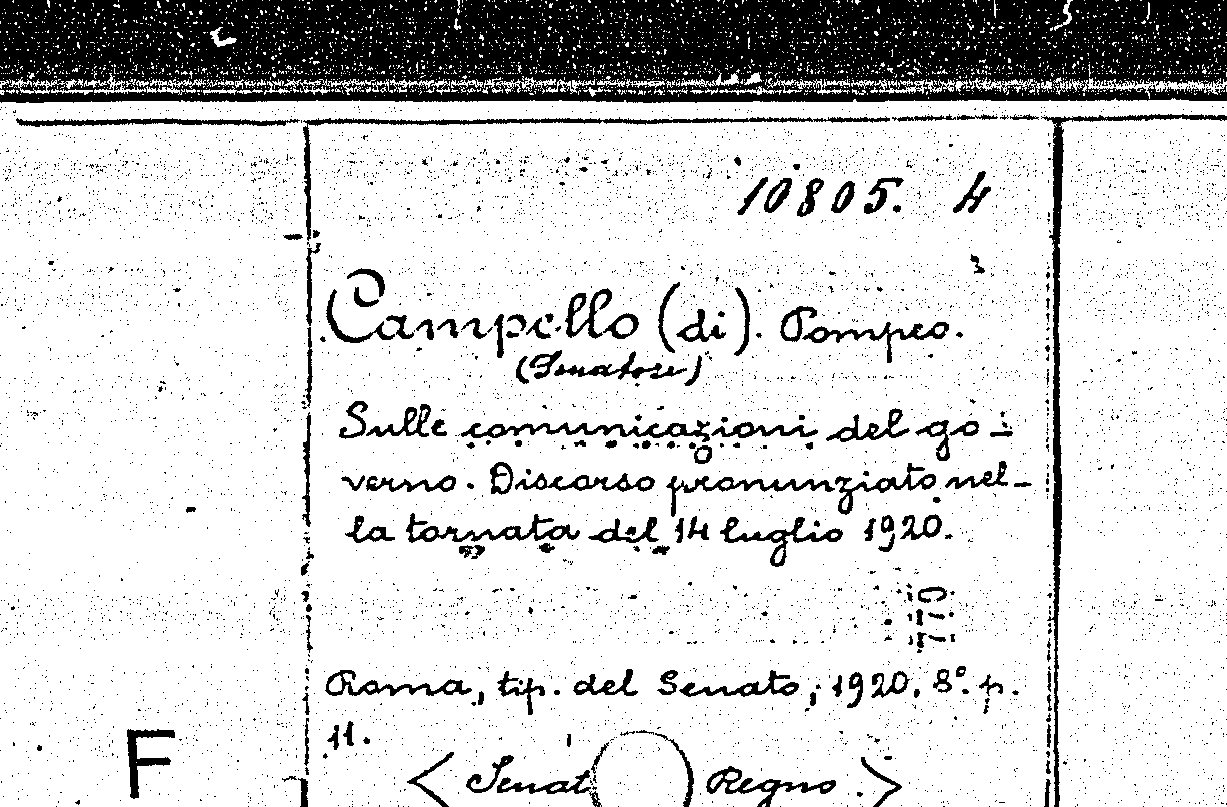 10805. 4
Campello (di). Pompeo.
(Senatore)
Sulle comunicazioni del go-
verno. Discorso pronunziato nel-
la tornata del 14 luglio 1920.
Roma, tip. del Senato, 1920. 8°. p.
11.
F
< Senat Regno. >